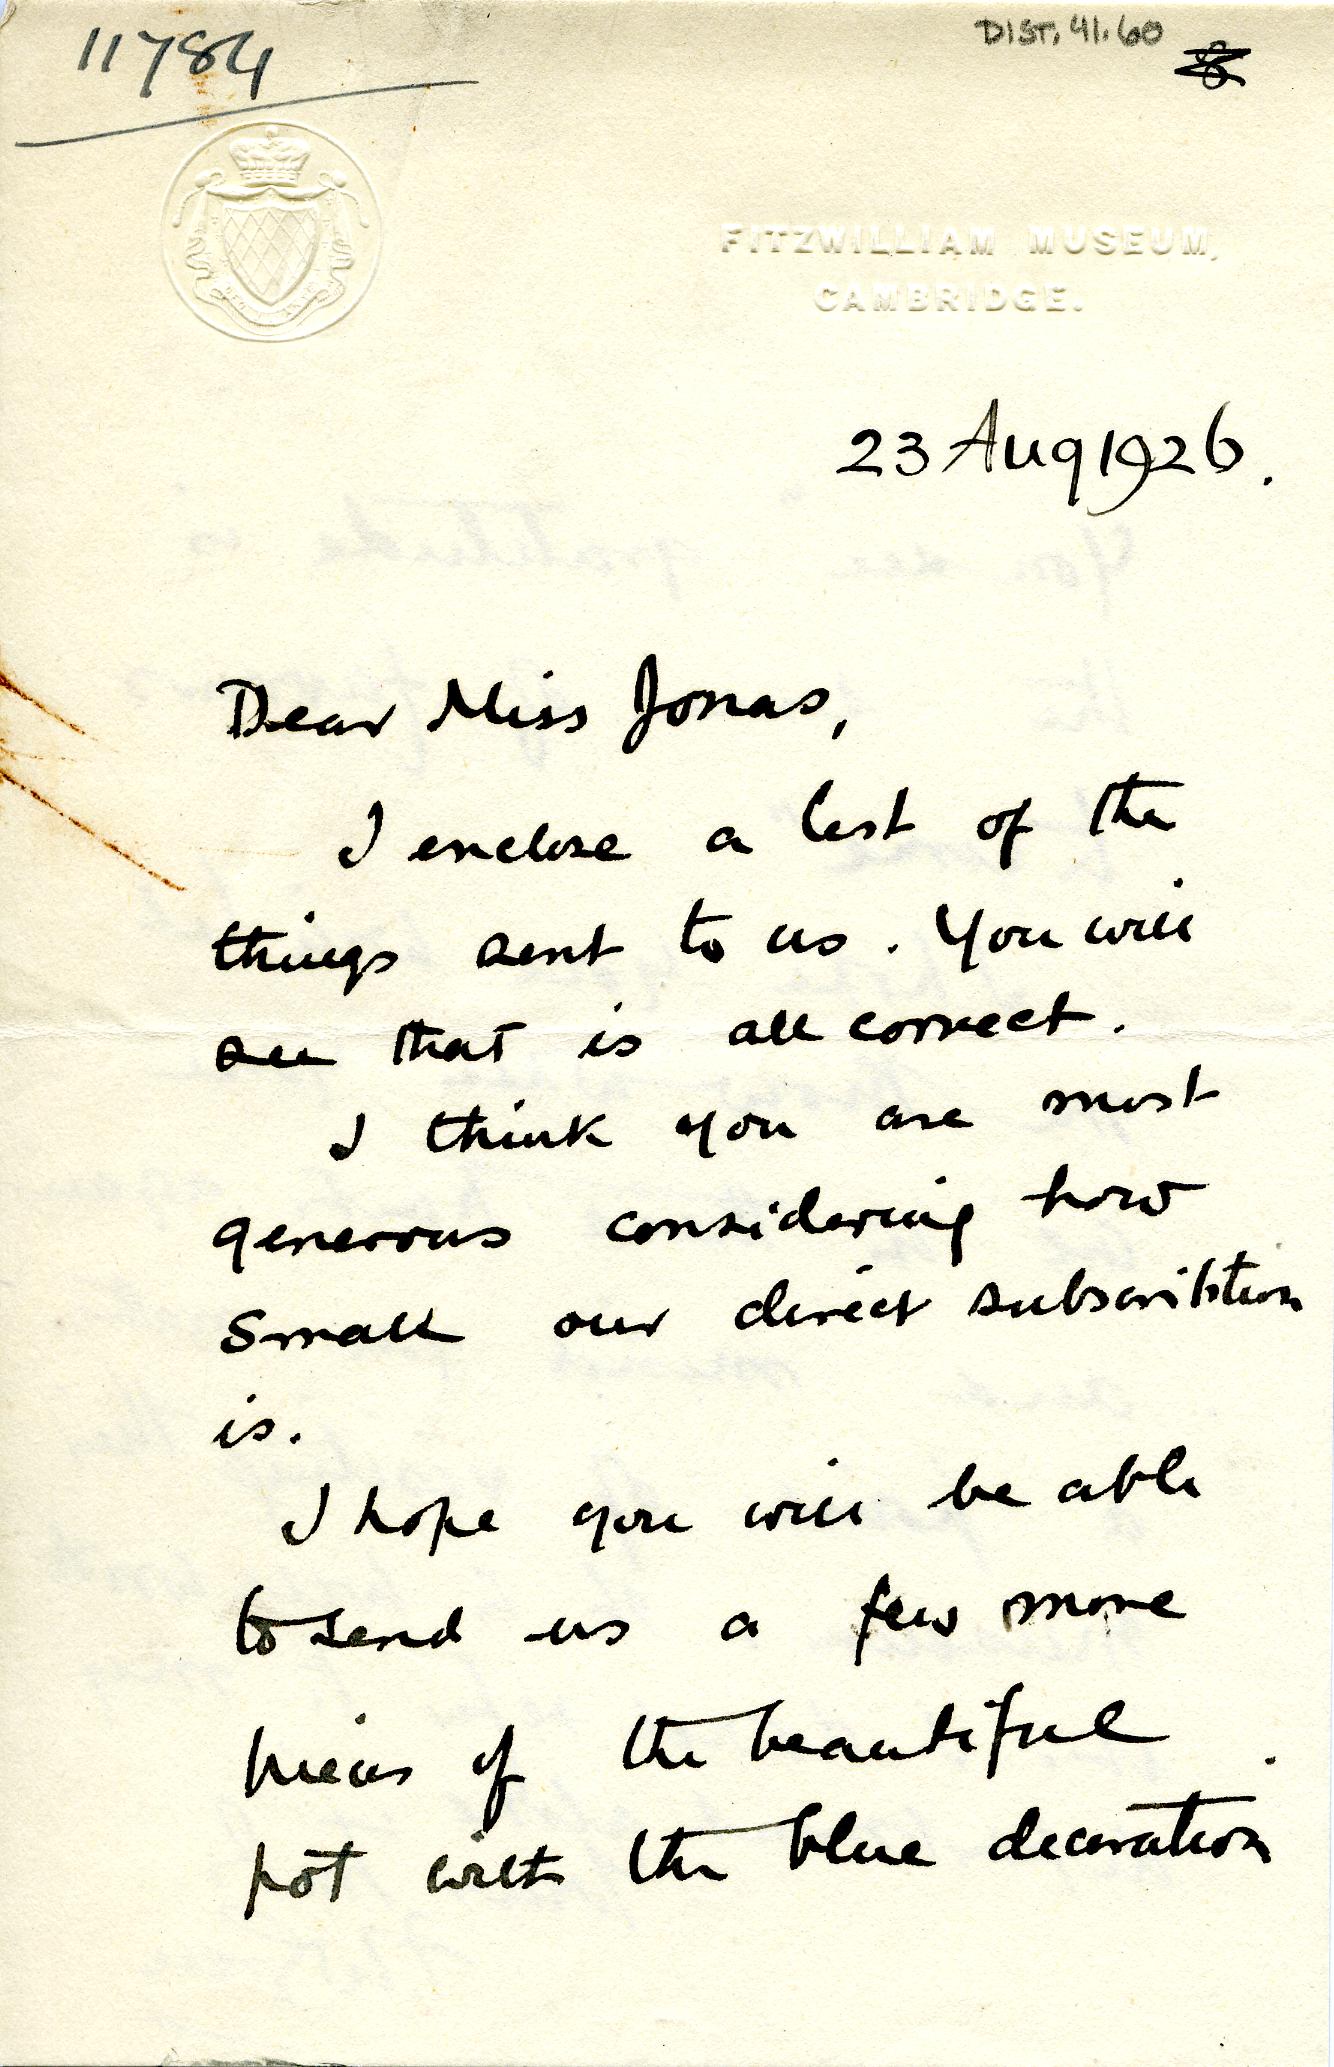 11784
DIST. 41.60
FITZWILLIAM MUSEUM,
CAMBRIDGE.
23 Aug 1926.
Dear Miss Jonas,
I enclose a list of the
things sent to us. You will
see that is all correct.
I think you are most
generous considering how
small our direct subscribtion
is.
I hope you will be able
to send us a few more
pieces of the beautiful
pot with the blue decoration